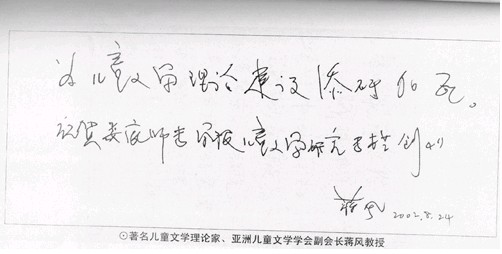 为儿童文学理论建设添砖加瓦。
祝贺娄底师专学报儿童文学研究专栏创刊
蒋风 2002.8.24
⊙著名儿童文学理论家、亚洲儿童文学学会副会长蒋风教授